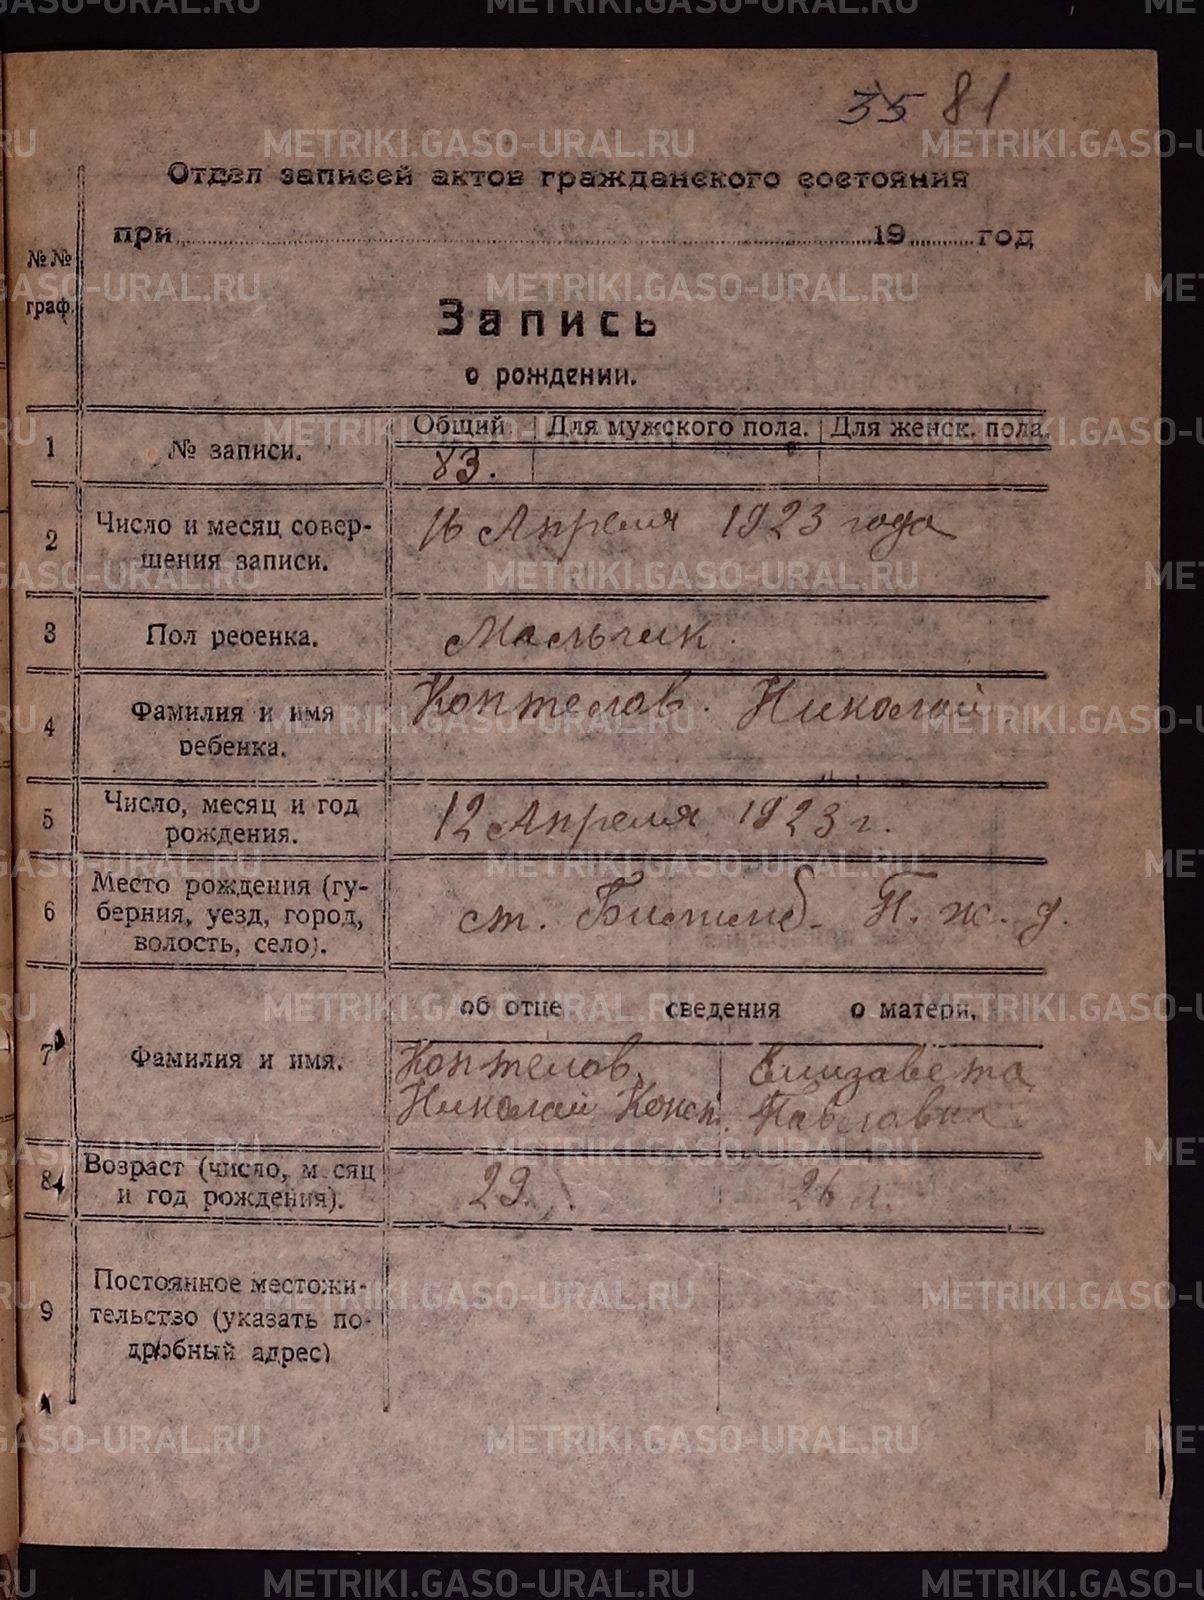 35 81
Отдел записей актов гражданского состояния
при 19 год
№№
граф.
Запись
о рождении.
1 № записи. Общий Для мужского пола. Для женск. пола.
83.
2 Число и месяц совер-
шения записи. 16 Апреля 1923 года
3 Пол ребенка. Мальчик.
4 Фамилия и имя
ребенка. Коптелов. Николай
5 Число, месяц и год
рождения. 12 Апреля 1923 г.
6 Место рождения (гу-
берния, уезд, город,
волость, село). ст. П. ж. д.
об отце сведения о матери.
7 Фамилия и имя. Коптелов Елизавета
Николай Конст. Павловна
8 Возраст (число, м сяц
и год рождения). 29 26 л.
9 Постоянное местожи-
тельство (указать по-
дробный адрес)
METRIKI.GASO-URAL.RU